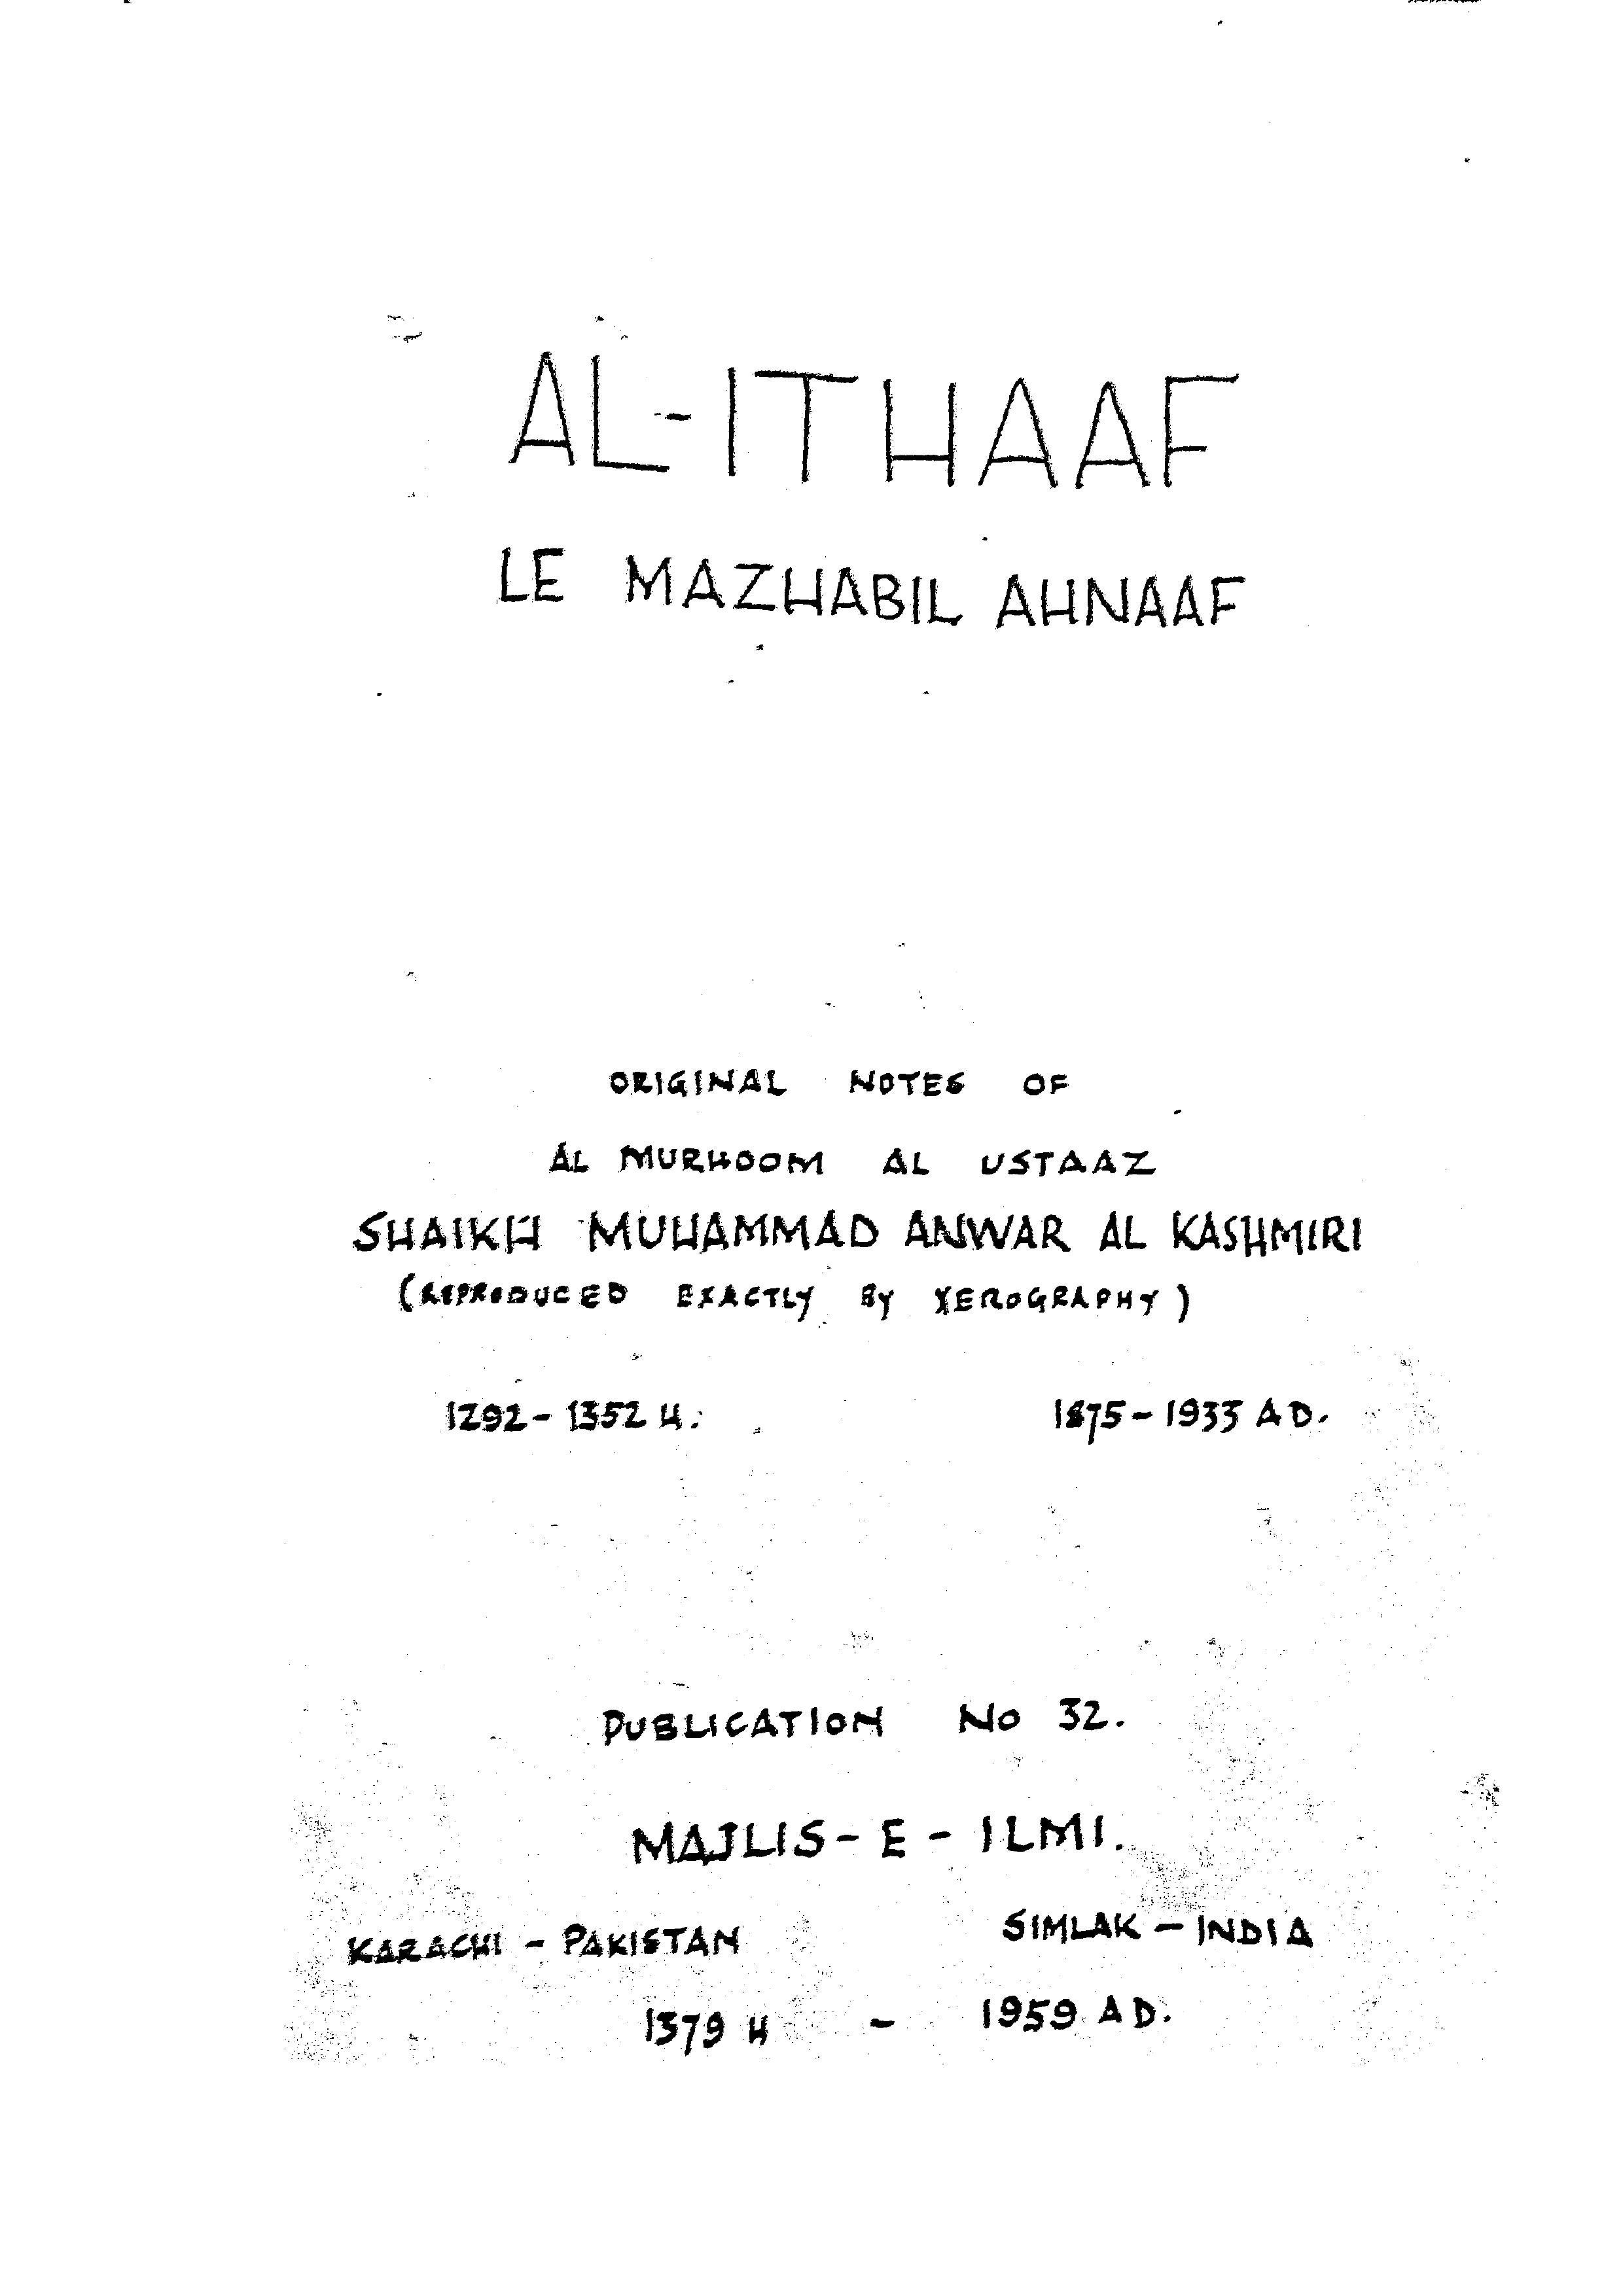 AL-ITHAAF
LE MAZHABIL AHNAAF
ORIGINAL NOTES OF
AL MURHOOM AL USTAAZ
SHAIKH MUHAMMAD ANWAR AL KASHMIRI
(REPRODUCED EXACTLY BY XEROGRAPHY)
1292-1352 H. 1875-1933 AD.
PUBLICATION No 32.
MAJLIS-E-ILMI.
KARACHI - PAKISTAN SIMLAK - INDIA
1379 H - 1959 AD.